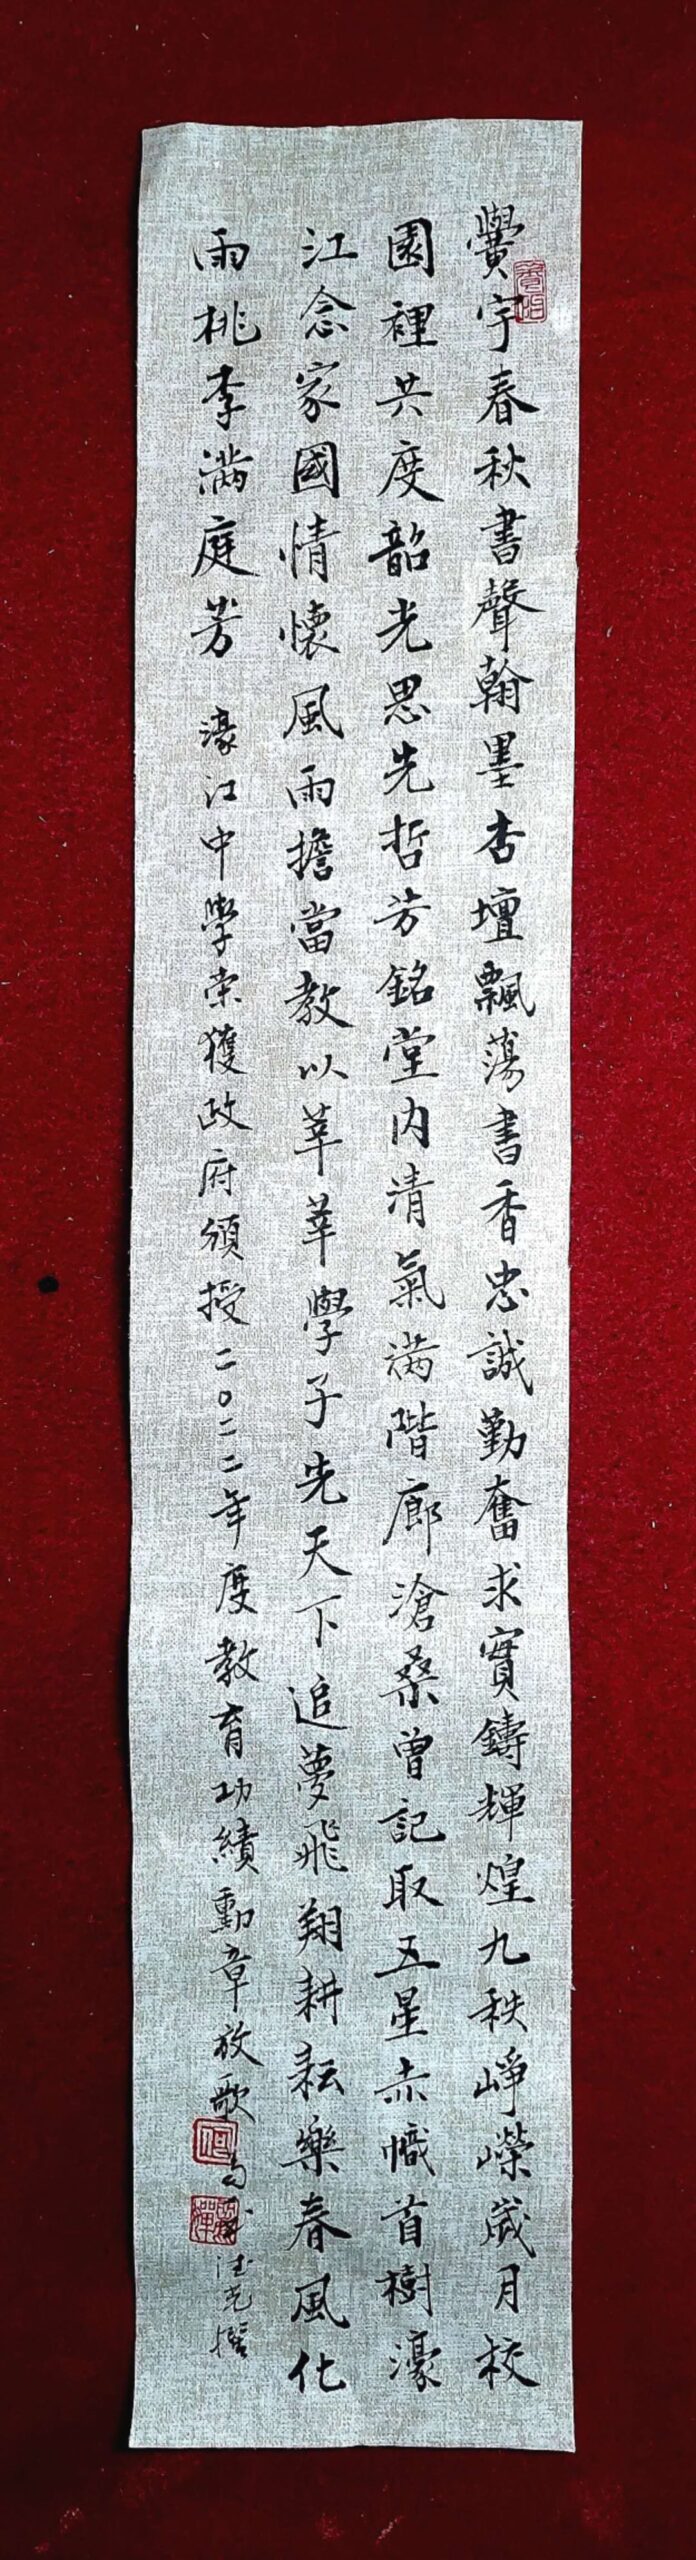 黌宇春秋書聲翰墨杏壇飄蕩書香忠誠勤奮求實鑄輝煌九秩崢嶸歲月校
園裡共度韶光思先哲芳銘堂內清氣满階廊滄桑曾記取五星赤幟首樹濠
江念家國情懷風雨擔當教以莘莘學子先天下追夢飛翔耕耘樂春風化
雨桃李满庭芳 濠江中學荣獲政府頒授二〇二二年度教育功績勳章放歌